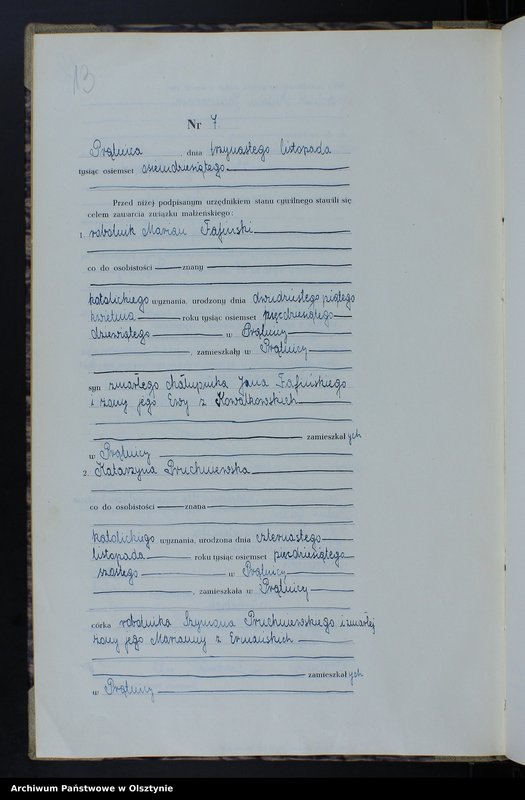 13
Nr 7
Prątnica, dnia trzynastego listopada
tysiąc osiemset osiemdziesiątego
Przed niżej podpisanym urzędnikiem stanu cywilnego stawili się
celem zawarcia związku małżeńskiego:
1. robotnik Marian Fafiński
co do osobistości znany
katolickiego wyznania, urodzony dnia dwudziestego piątego
kwietnia roku tysiąc osiemset pięćdziesiątego
dziewiątego w Prątnicy
, zamieszkały w Prątnicy
syn zmarłego chałupnika Jana Fafińskiego
i żony jego Ewy z Kowalkowskich
zamieszkałych
w Prątnicy
2. Katarzyna Pruchniewska
co do osobistości znana
katolickiego wyznania, urodzona dnia czternastego
listopada roku tysiąc osiemset pięćdziesiątego
szóstego w Prątnicy
, zamieszkała w Prątnicy
córka robotnika Szymona Pruchniewskiego i zmarłej
żony jego Marianny z
zamieszkałych
w Prątnicy
Archiwum Państwowe w Olsztynie